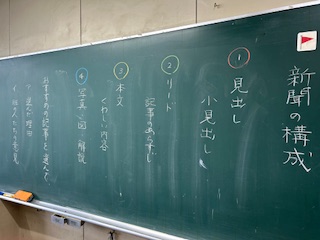 新聞の構成
① 見出し
小見出し
② リード
記事のあらすじ
③ 本文
くわしい内容
④ 写真・図・解説
おすすめの記事を選んで
ア 選んだ理由